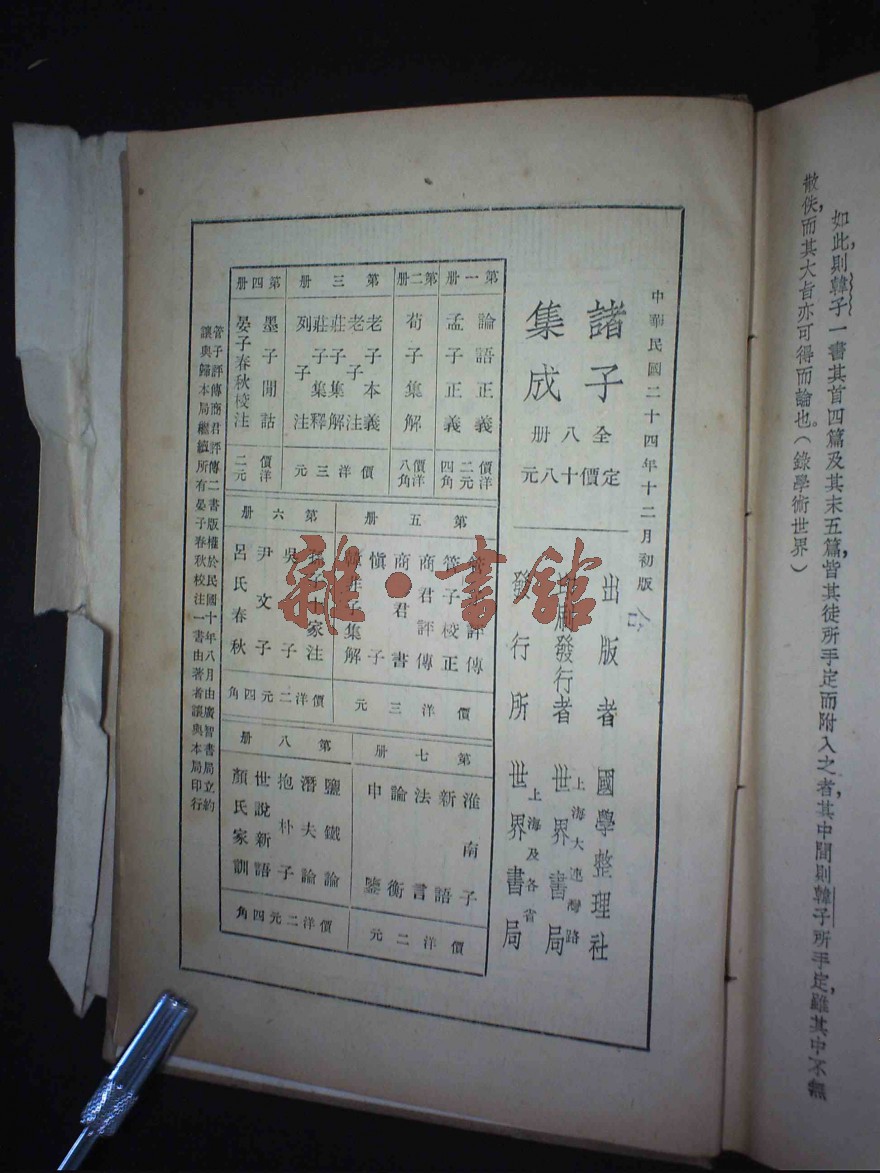 如此,則韓子一書其首四篇及其末五篇,皆其徒所手定而附入之者,其中間則韓子所手定,雖其中不無
散佚,而其大旨亦可得而論也。(錄學術世界)
中華民國二十四年十二月初版
諸子
集成
全八册
定價十八元
出版者 國學整理社
印刷發行者 上海大連灣路 世界書局
發行所 上海及各省 世界書局
第一册
論語正義
孟子正義
價洋二元四角
第二册
荀子集解
價洋八角
第三册
老子本義
老子注
莊子集解
莊子集釋
列子注
價洋三元
第四册
墨子閒詁
晏子春秋校注
價洋二元
第五册
管子評傳
管子校正
商君評傳
商君書
慎子
韓非子集解
價洋三元
第六册
孫子十家注
吳子
尹文子
呂氏春秋
價洋二元四角
第七册
淮南子
新語
法言
論衡
申鑒
價洋二元
第八册
鹽鐵論
潛夫論
抱朴子
世說新語
顏氏家訓
價洋二元四角
管子評傳商君評傳二書版權於民國十年八月由廣智書局立約
讓與歸本局繼續所有晏子春秋校注一書由著者讓與本局印行
雜·書館